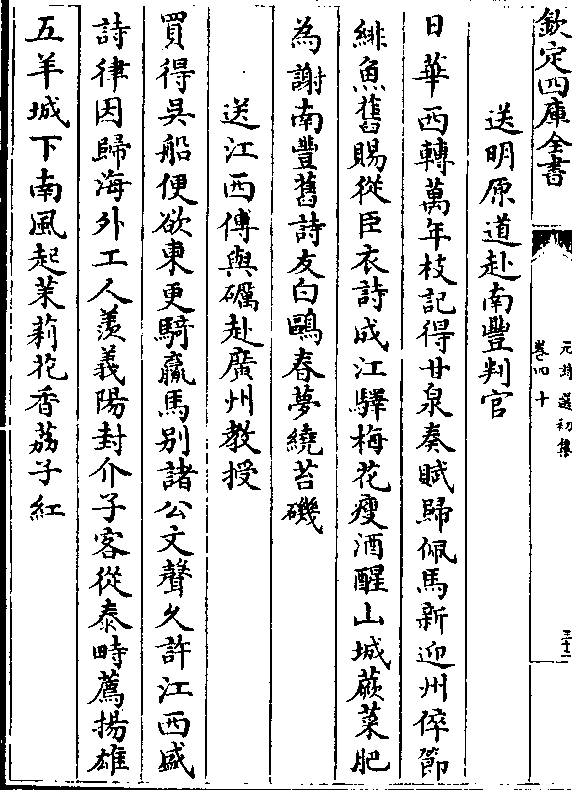 欽定四庫全書
元詩選初集
卷四十
三十二
送明原道赴南豐判官
日華西轉萬年枝記得甘泉奏賦歸佩馬新迎州倅節
緋魚舊賜從臣衣詩成江驛梅花瘦酒醒山城蕨菜肥
為謝南豐舊詩友白鷗春夢繞苔磯
送江西傅與礪赴廣州教授
買得吳船便欲東更騎羸馬别諸公文聲久許江西盛
詩律因歸海外工人羨義陽封介子客從泰畤薦揚雄
五羊城下南風起茉莉花香荔子紅